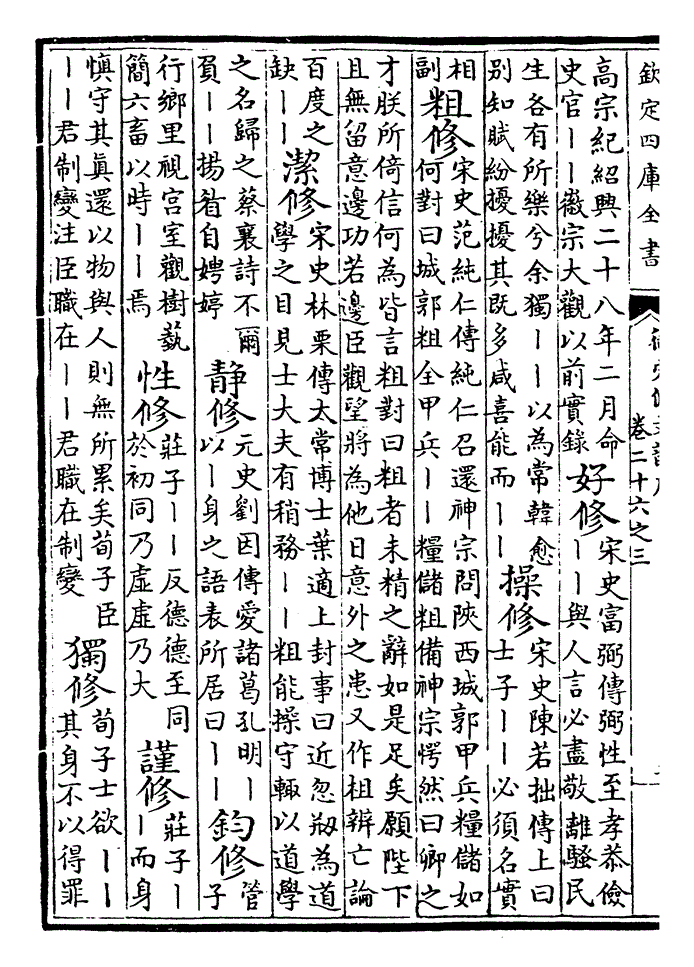 欽定四庫全書
卷二十六之三
高宗紀紹興二十八年二月命
史官丨丨徽宗大觀以前實錄
好修
宋史富弼傳弼性至孝恭儉
丨丨與人言必盡敬離騷民
生各有所樂兮余獨丨丨以為常韓愈
别知賦紛擾擾其既多咸喜能而丨丨
操修
宋史陳若拙傳上曰
士子丨丨必須名實
相
副
粗修
宋史范純仁傳純仁召還神宗問陜西城郭甲兵糧儲如
何對曰城郭粗全甲兵丨丨糧儲粗備神宗愕然曰卿之
才朕所倚信何為皆言粗對曰粗者未精之辭如是足矣願陛下
且無留意邊功若邊臣觀望將為他日意外之患又作粗辨亡論
百度之
缺丨丨
潔修
宋史林栗傳太常博士葉適上封事曰近忽刱為道
學之目見士大夫有稍務丨丨粗能操守輒以道學
之名歸之蔡襄詩不爾
負丨丨揚眉自娉婷
静修
元史劉因傳愛諸葛孔明丨
以丨身之語表所居曰丨丨
鈞修
管
子
行鄉里視宮室觀樹蓺
簡六畜以時丨丨焉
性修
莊子丨丨反德德至同
於初同乃虛虛乃大
謹修
莊子丨
丨而身
慎守其真還以物與人則無所累矣荀子臣
丨丨君制變注臣職在丨丨君職在制變
獨修
荀子士欲丨丨
其身不以得罪